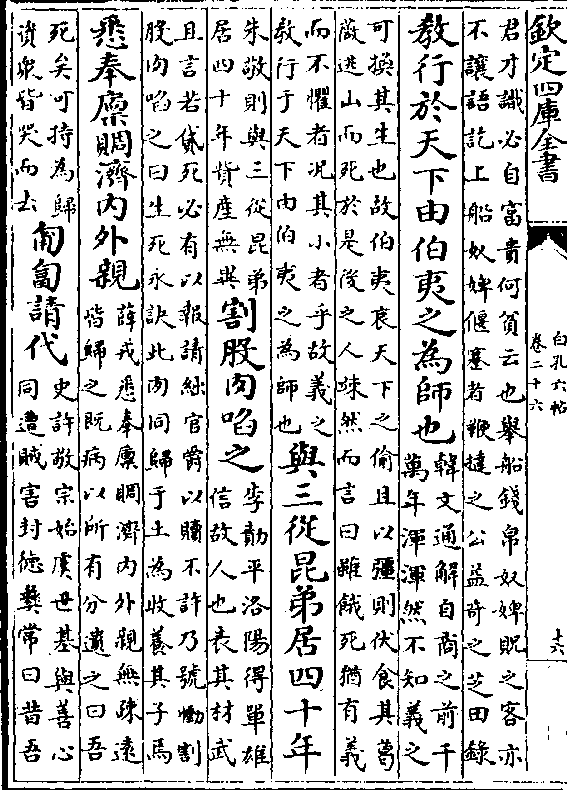 欽定四庫全書
白孔六帖
卷二十六
十六
君才識必自富貴何貧云也舉船錢帛奴婢貺之客亦
不讓語訖上船奴婢偃塞者鞭撻之公益奇之芝田錄
教行於天下由伯夷之為師也
韓文通解自商之前千
萬年渾渾然不知義之
可換其生也故伯夷哀天下之偷且以彊則伏食其葛
薇逃山而死於是後之人竦然而言曰雖餓死猶有義
而不懼者況其小者乎故義之
教行于天下由伯夷之為師也
與三從昆弟居四十年
朱敬則與三從昆弟
居四十年貲產無異
割股肉啗之
李勣平洛陽得單雄
信故人也表其材武
且言若貸死必有以報請紲官爵以贖不許乃號慟割
股肉啗之曰生死永訣此肉同歸于土為收養其子焉
悉奉廪賙濟內外親
薛戎悉奉廪賙濟內外親無疎遠
皆歸之既病以所有分遺之曰吾
死矣可持為歸
資衆皆哭而去
匍匐請代
史許敬宗始虞世基與善心
同遭賊害封徳彝常曰昔吾